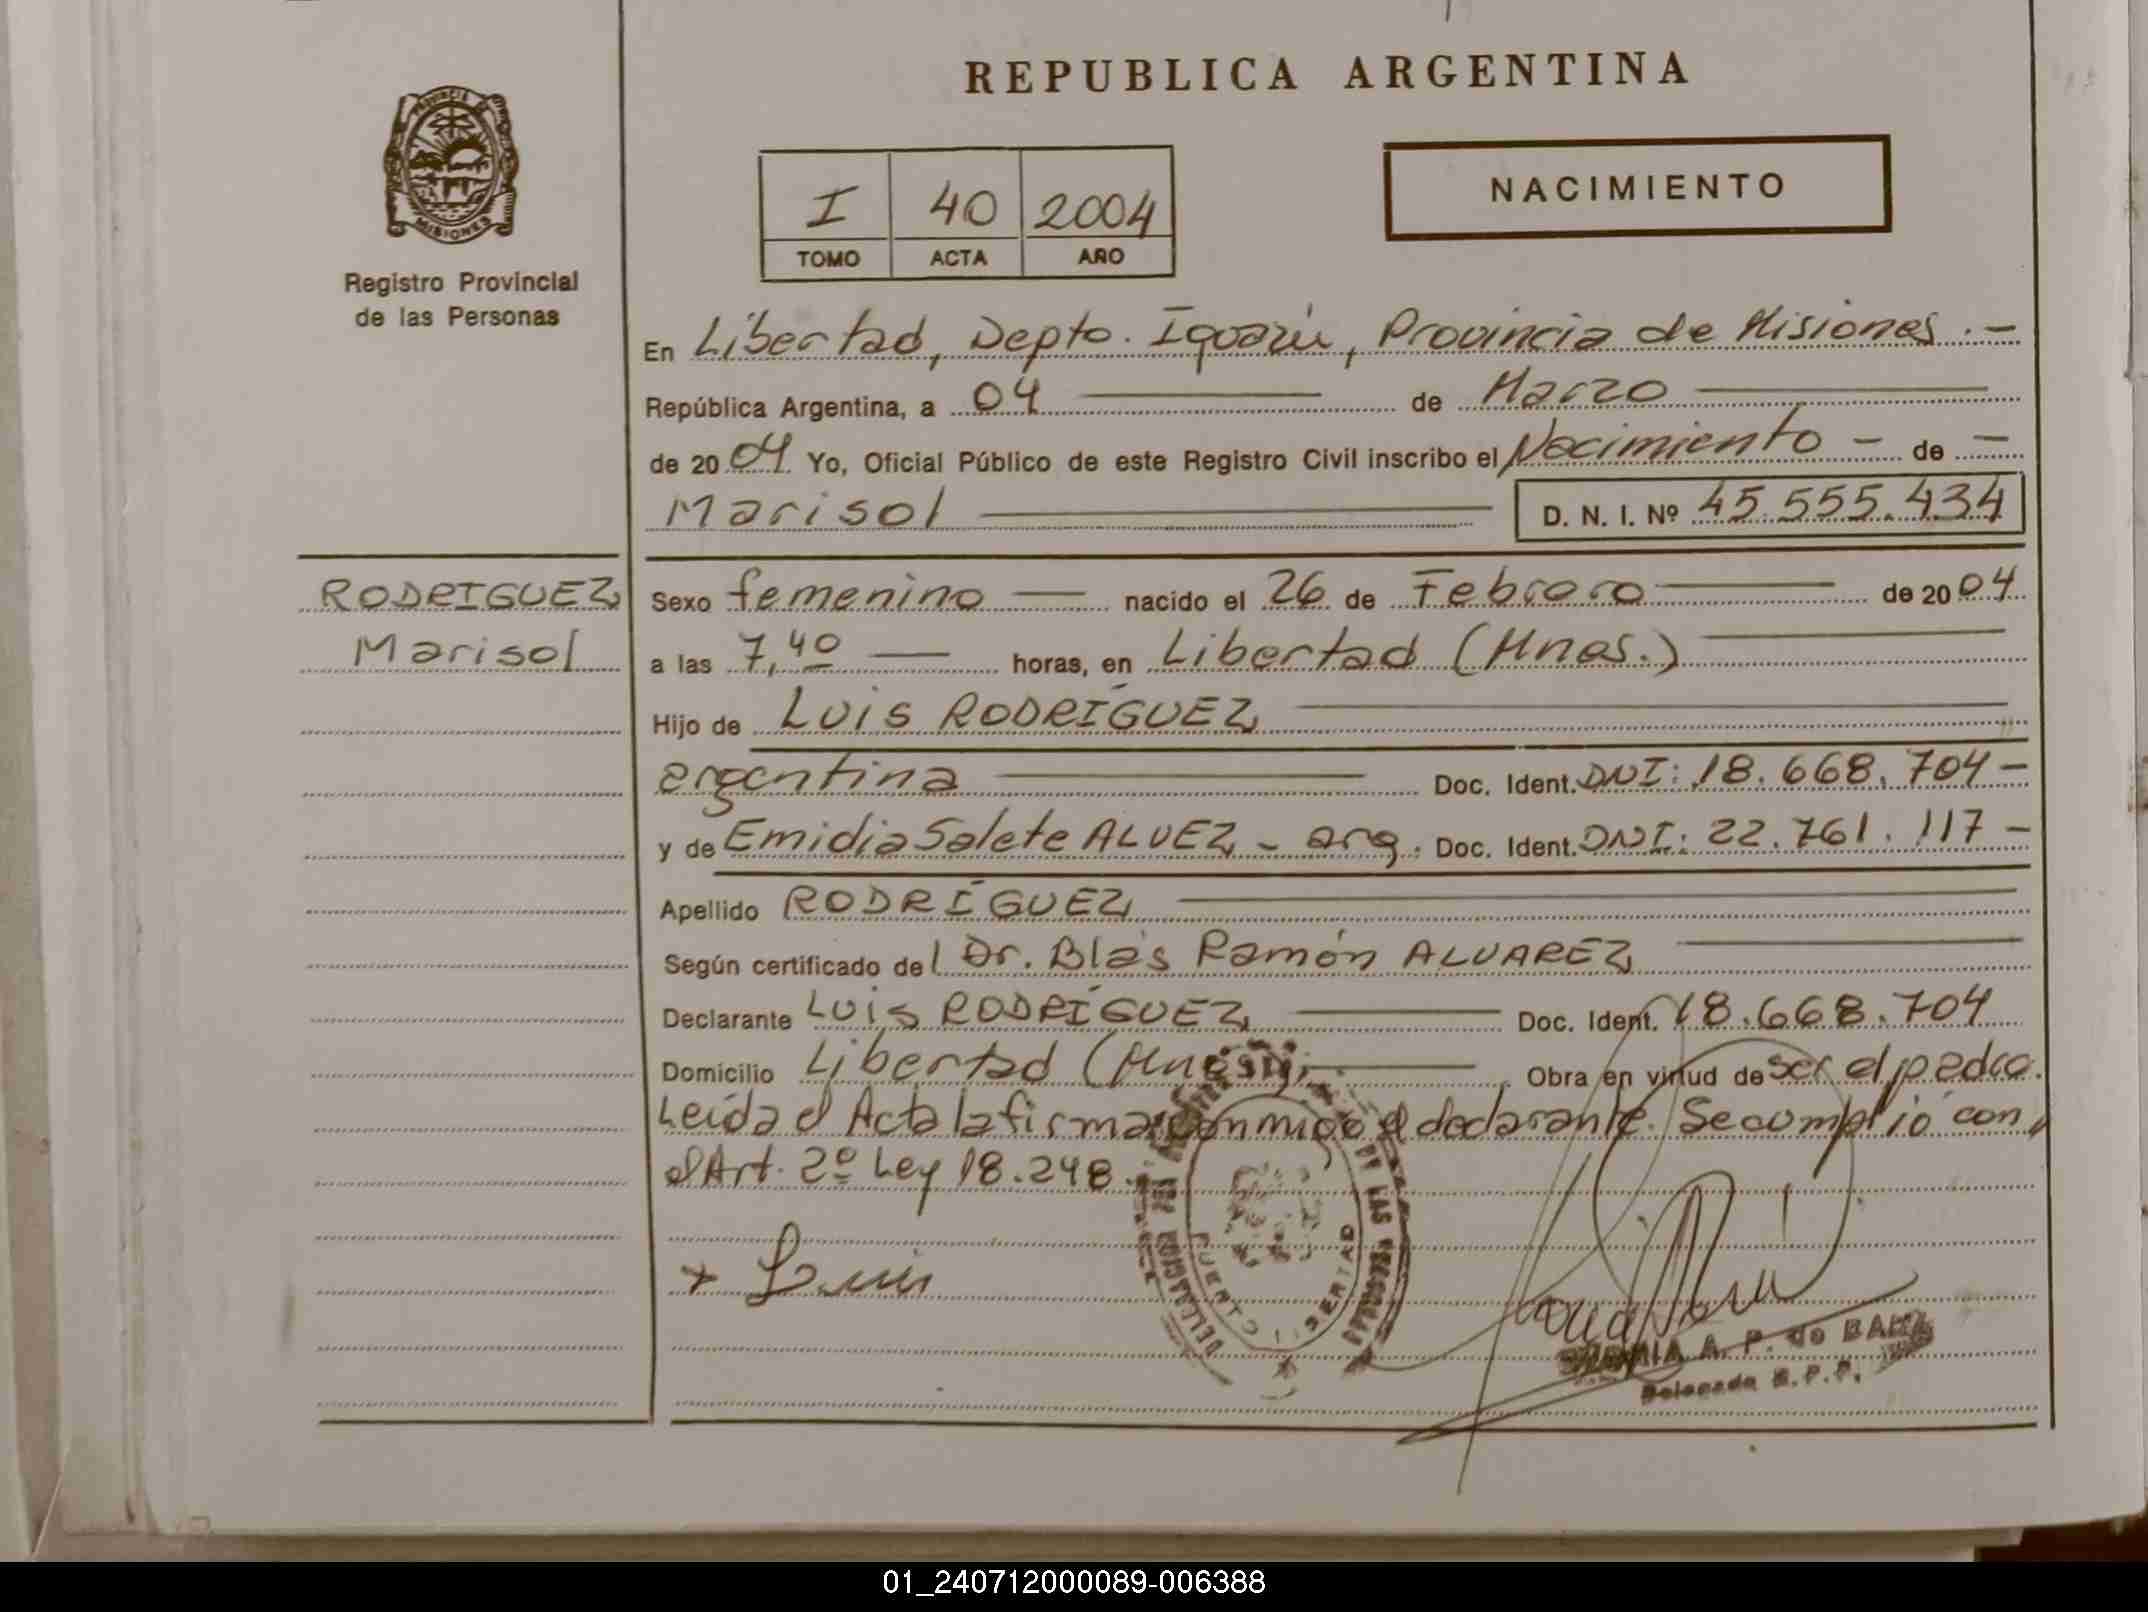 REPUBLICA ARGENTINA
PROVINCIA DE
MISIONES
Registro Provincial
de las Personas
NACIMIENTO
I 40 2004
TOMO ACTA AÑO
En Libertad, Depto. Iguazú, Provincia de Misiones.-
República Argentina, a 04 de Marzo
de 2004 Yo, Oficial Público de este Registro Civil inscribo el Nacimiento - de -
Marisol D. N. I. Nº 45.555.434
RODRIGUEZ
Marisol
Sexo femenino nacido el 26 de Febrero de 2004
a las 7,40 horas, en Libertad (Mnes.)
Hijo de Luis RODRÍGUEZ
argentina Doc. Ident. DNI: 18.668.704-
y de Emidia Salete ALVEZ - arg. Doc. Ident. DNI: 22.761.117-
Apellido RODRÍGUEZ
Según certificado del Dr. Blas Ramón ALVAREZ
Declarante Luis RODRÍGUEZ Doc. Ident. 18.668.704
Domicilio Libertad (Mnes.) Obra en virtud de ser el padre.
Leída el Acta la firma conmigo el declarante. Se cumplió con
el Art. 2º Ley 18.248.
DE LAS PERSONAS
LIBERTAD
x Luis
A. P. de
Delegada R.P.P.
01_240712000089-006388